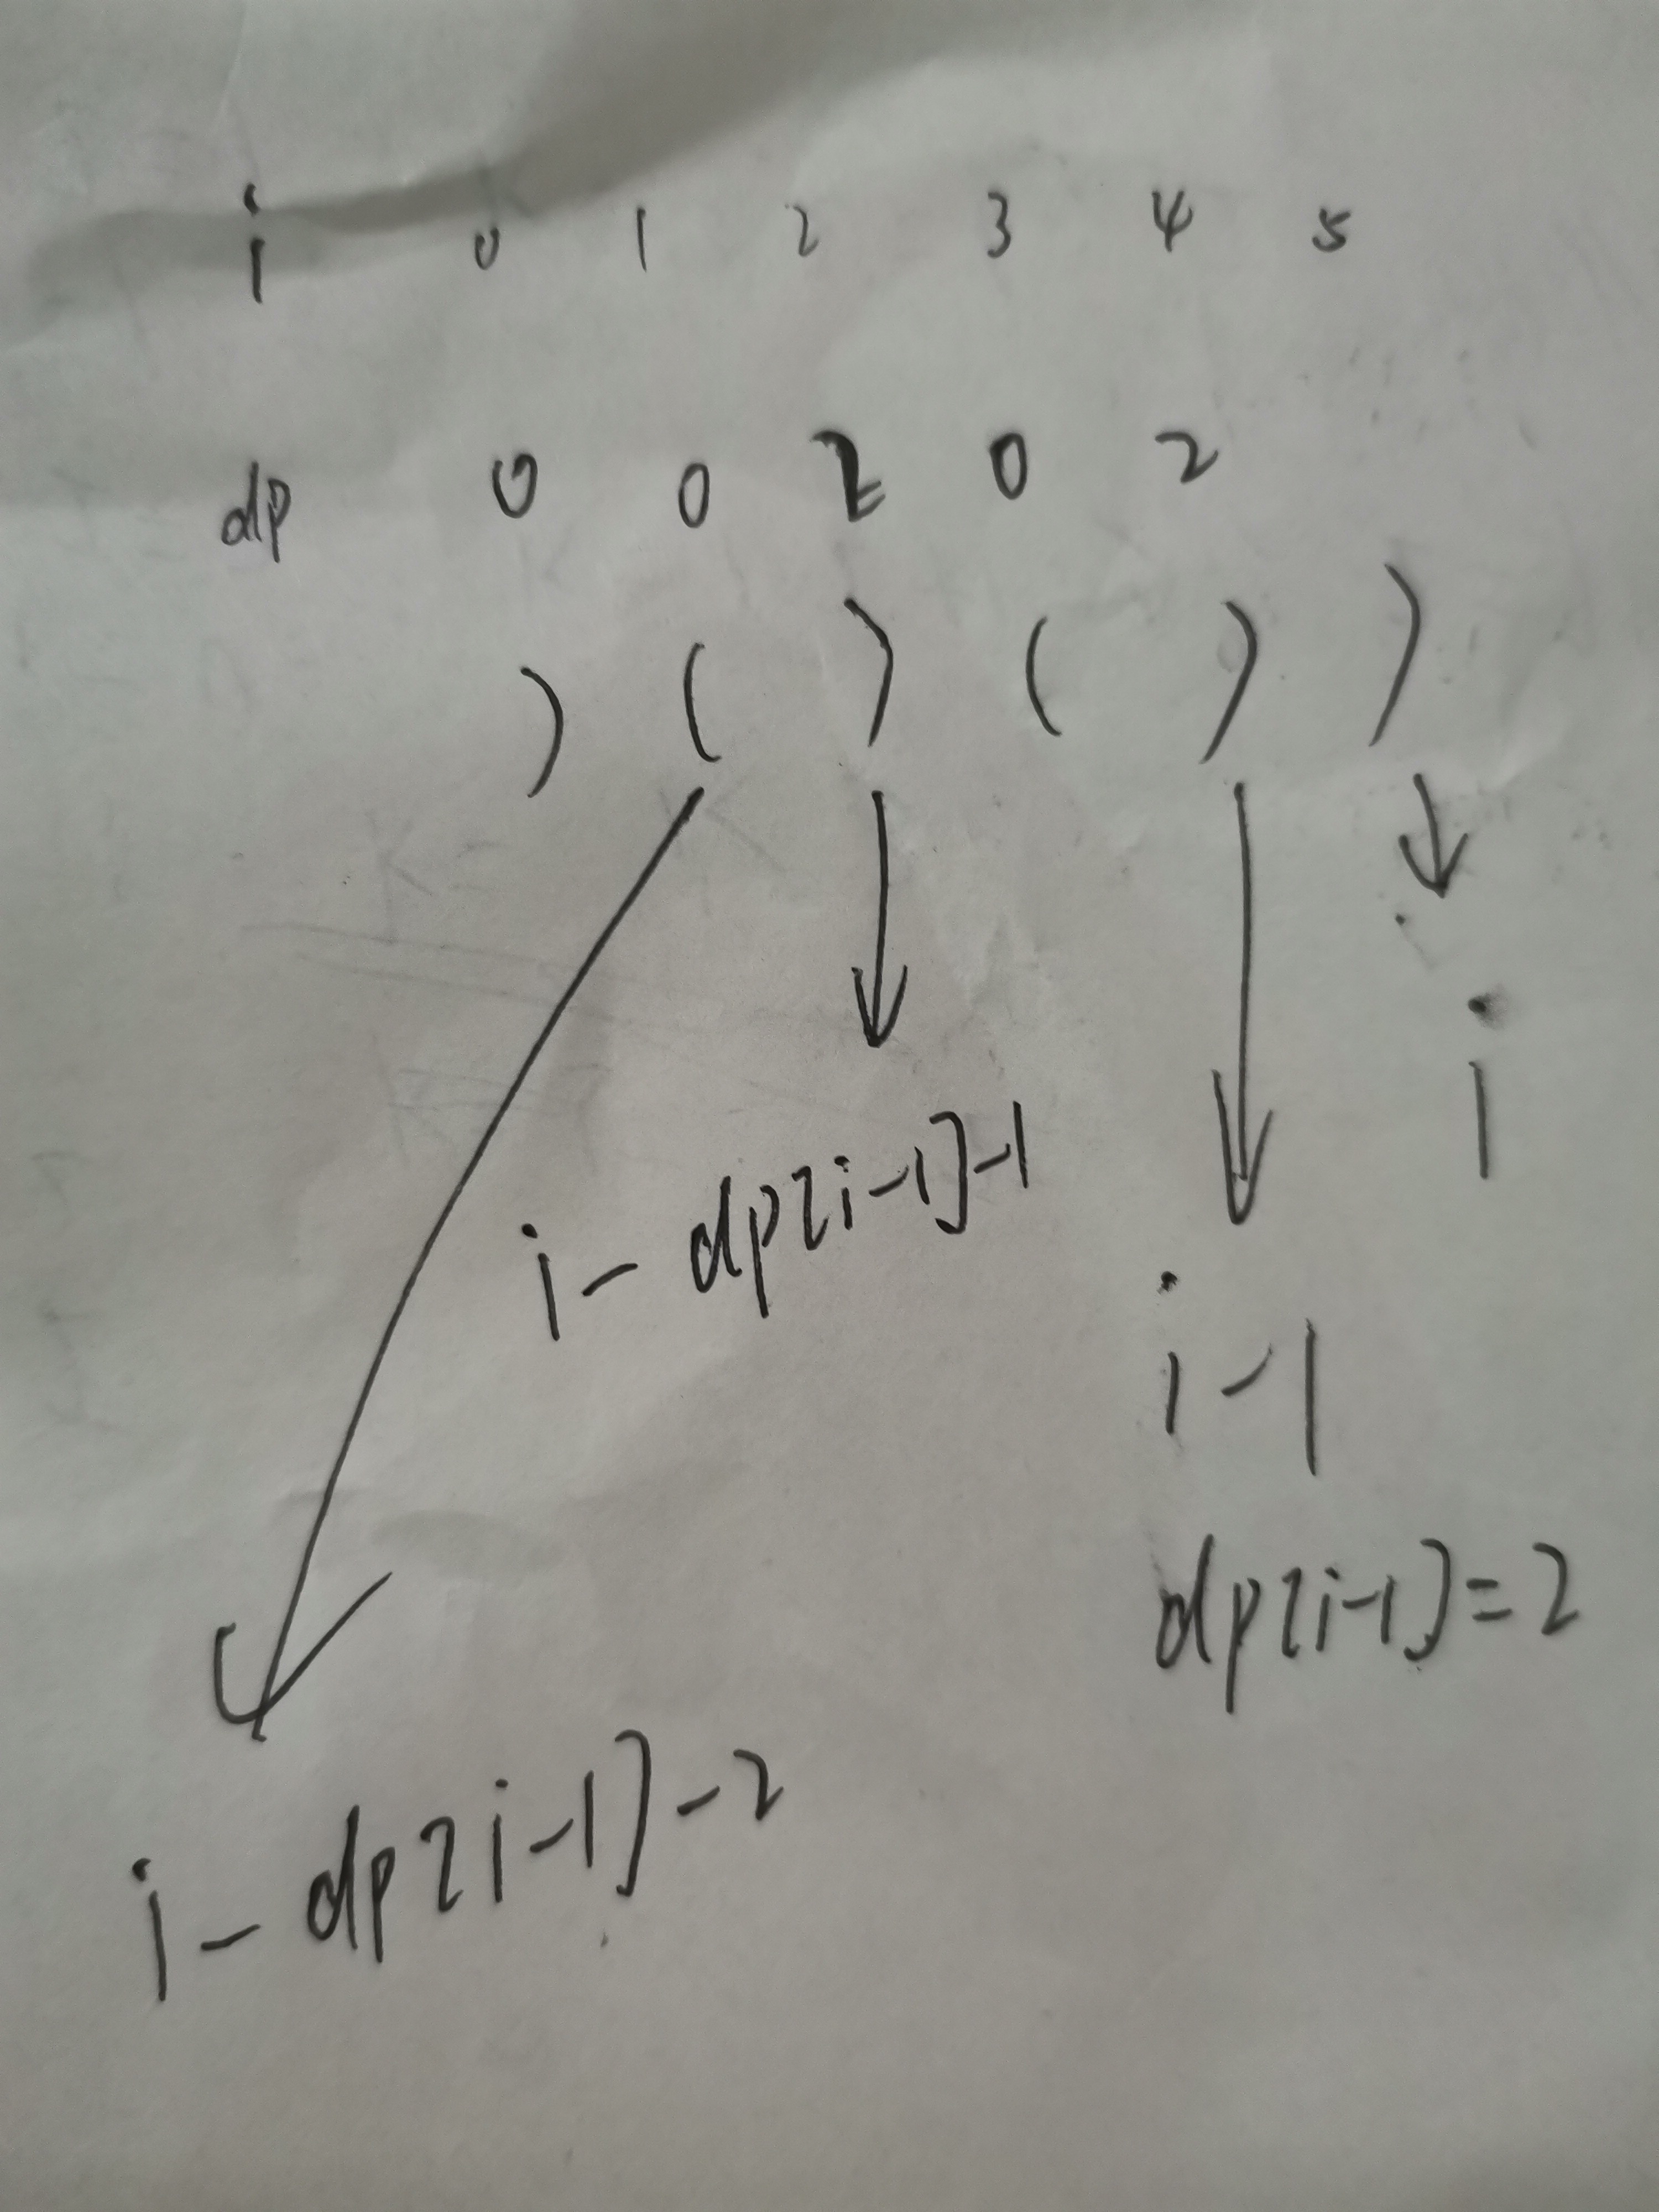 i 0 1 2 3 4 5
dp 0 0 2 0 2
) ( ) ( ) )
i
i - dp[i-1]-1
i-1
dp[i-1]=2
i - dp[i-1]-2